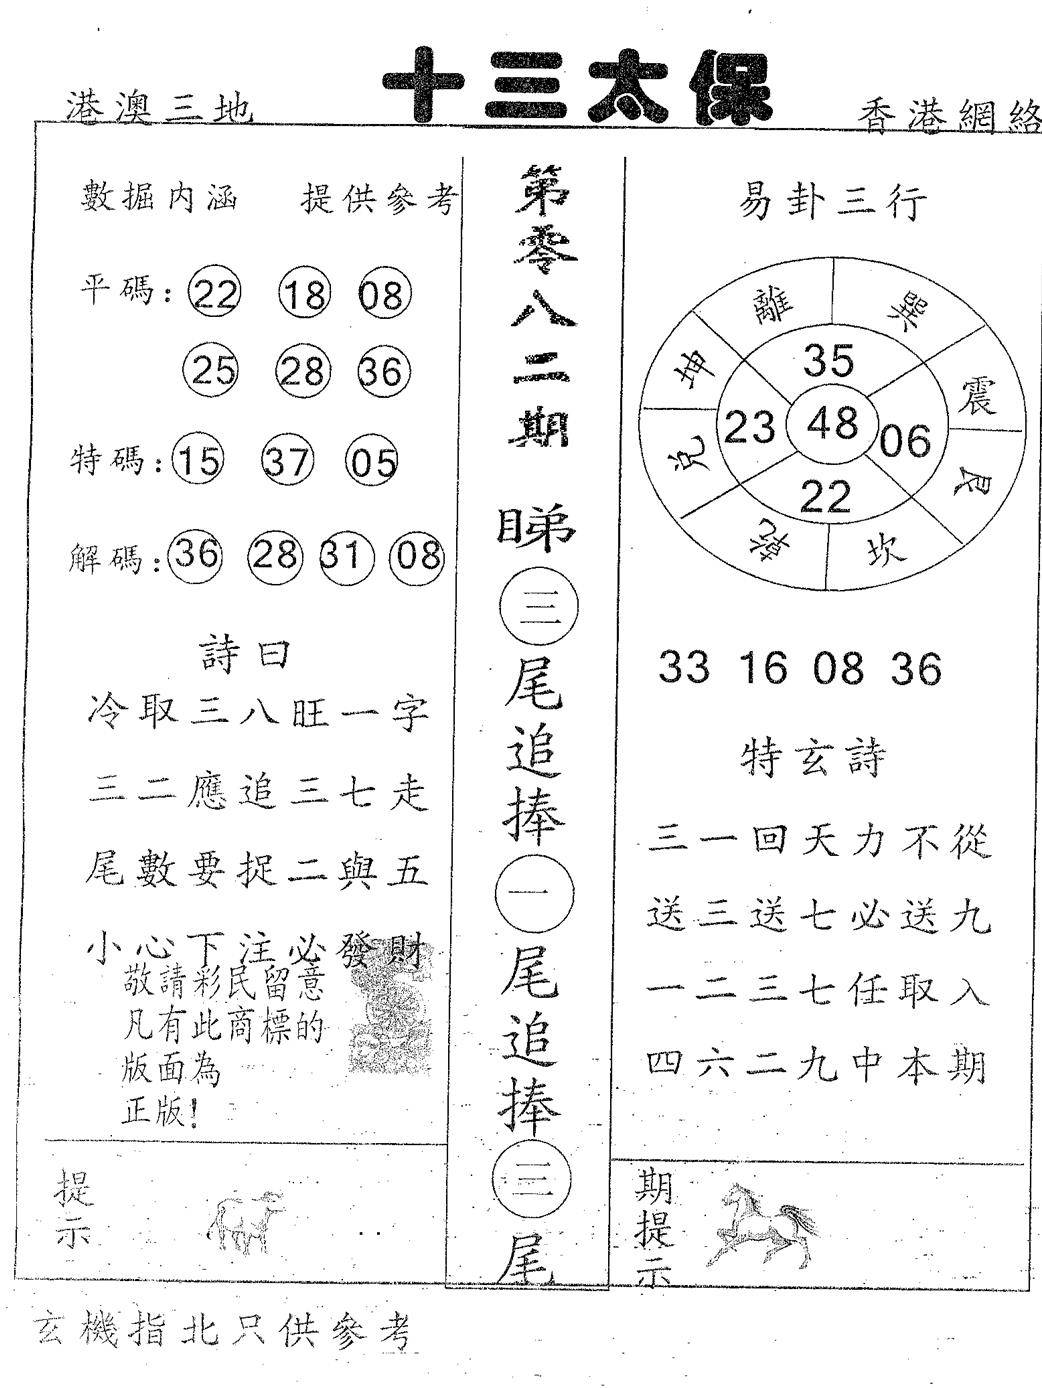 十三太保
港澳三地
香港網絡
數掘内涵 提供參考
平碼: 22 18 08
25 28 36
特碼: 15 37 05
解碼: 36 28 31 08
詩曰
冷取三八旺一字
三二應追三七走
尾數要捉二與五
小心下注必發財
敬請彩民留意
凡有此商標的
版面為
正版!
提示
第零八二期
睇三尾追捧一尾追捧三尾
易卦三行
離 巽
坤 35 震
23 48 06
兌 22 艮
乾 坎
33 16 08 36
特玄詩
三一回天力不從
送三送七必送九
一二三七任取入
四六二九中本期
期提示
玄機指北只供參考